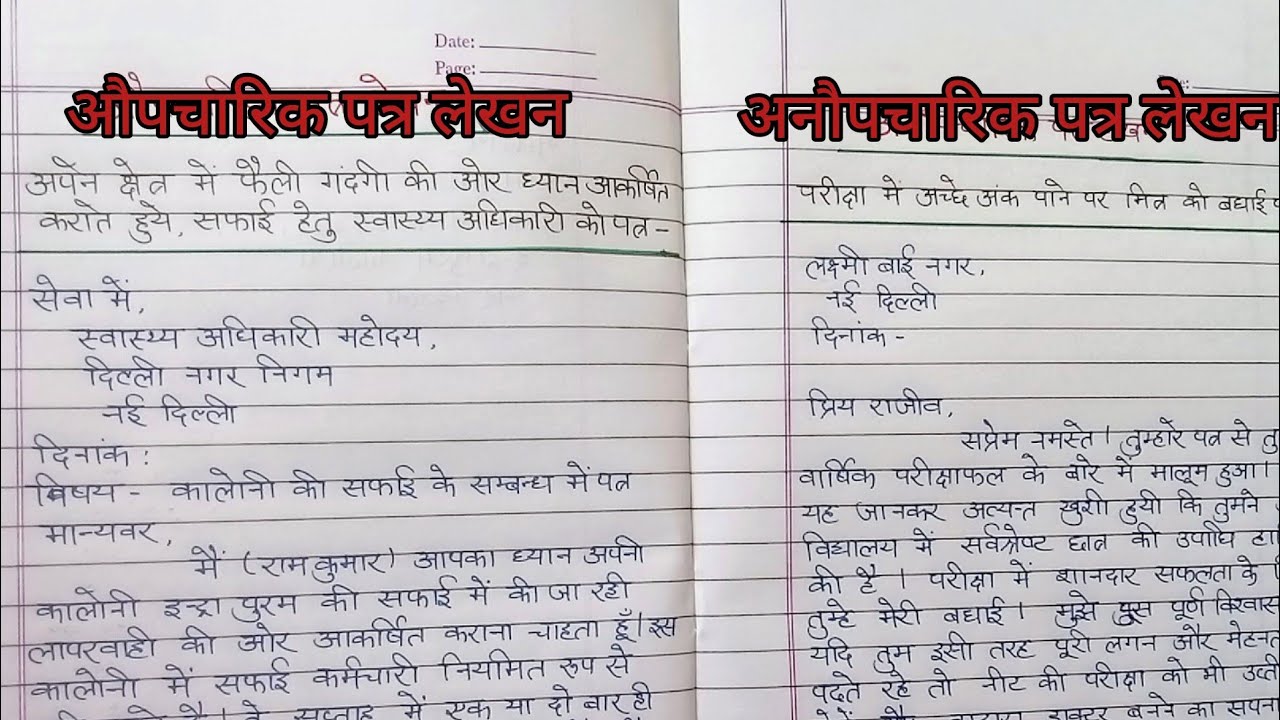 Date:
Page:
औपचारिक पत्र लेखन
अपने क्षेत्र में फैली गंदगी की ओर ध्यान आकर्षित
कराते हुये, सफाई हेतु स्वास्थ्य अधिकारी को पत्र -
सेवा में,
स्वास्थ्य अधिकारी महोदय,
दिल्ली नगर निगम
नई दिल्ली
दिनांक :
विषय - कालोनी की सफाई के सम्बन्ध में पत्र
मान्यवर,
मैं (रामकुमार) आपका ध्यान अपनी
कालोनी इन्द्रा पुरम की सफाई में की जा रही
लापरवाही की ओर आकर्षित कराना चाहता हूँ। इस
कालोनी में सफाई कर्मचारी नियमित रूप से
सप्ताह में एक या दो बार ही
अनौपचारिक पत्र लेखन
परीक्षा में अच्छे अंक पाने पर मित्र को बधाई
लक्ष्मी बाई नगर,
नई दिल्ली
दिनांक -
प्रिय राजीव,
सप्रेम नमस्ते। तुम्हारे पत्र से
वार्षिक परीक्षाफल के बारे में मालूम हुआ।
यह जानकर अत्यन्त खुशी हुयी कि तुमने
विद्यालय में सर्वश्रेष्ट छात्र की उपाधि
की है। परीक्षा में शानदार सफलता के
तुम्हे मेरी बधाई। मुझे पूर्ण विश्वास
यदि तुम इसी तरह पूरी लगन और मेहनत
पढ़ते रहे तो नीट की परीक्षा को भी
डाक्टर बनने का सपना